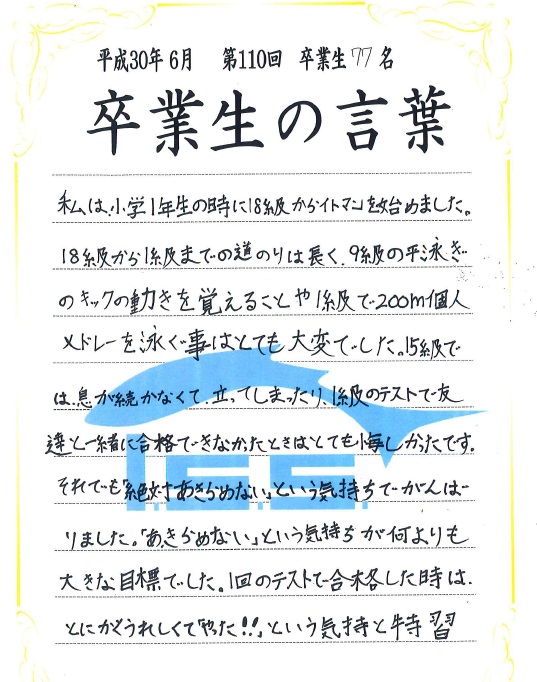 平成30年6月 第110回 卒業生77名
卒業生の言葉
私は、小学1年生の時に18級からイトマンを始めました。
18級から1級までの道のりは長く、9級の平泳ぎ
のキックの動きを覚えることや1級で200m個人
メドレーを泳ぐ事はとても大変でした。15級で
は、息が続かなくて、立ってしまったり、1級のテストで友
達と一緒に合格できなかったときはとても悔しかったです。
それでも「絶対あきらめない」という気持ちでがんば
りました。「あきらめない」という気持ちが何よりも
大きな目標でした。1回のテストで合格した時は、
とにかくうれしくて「やった!!」という気持と特習